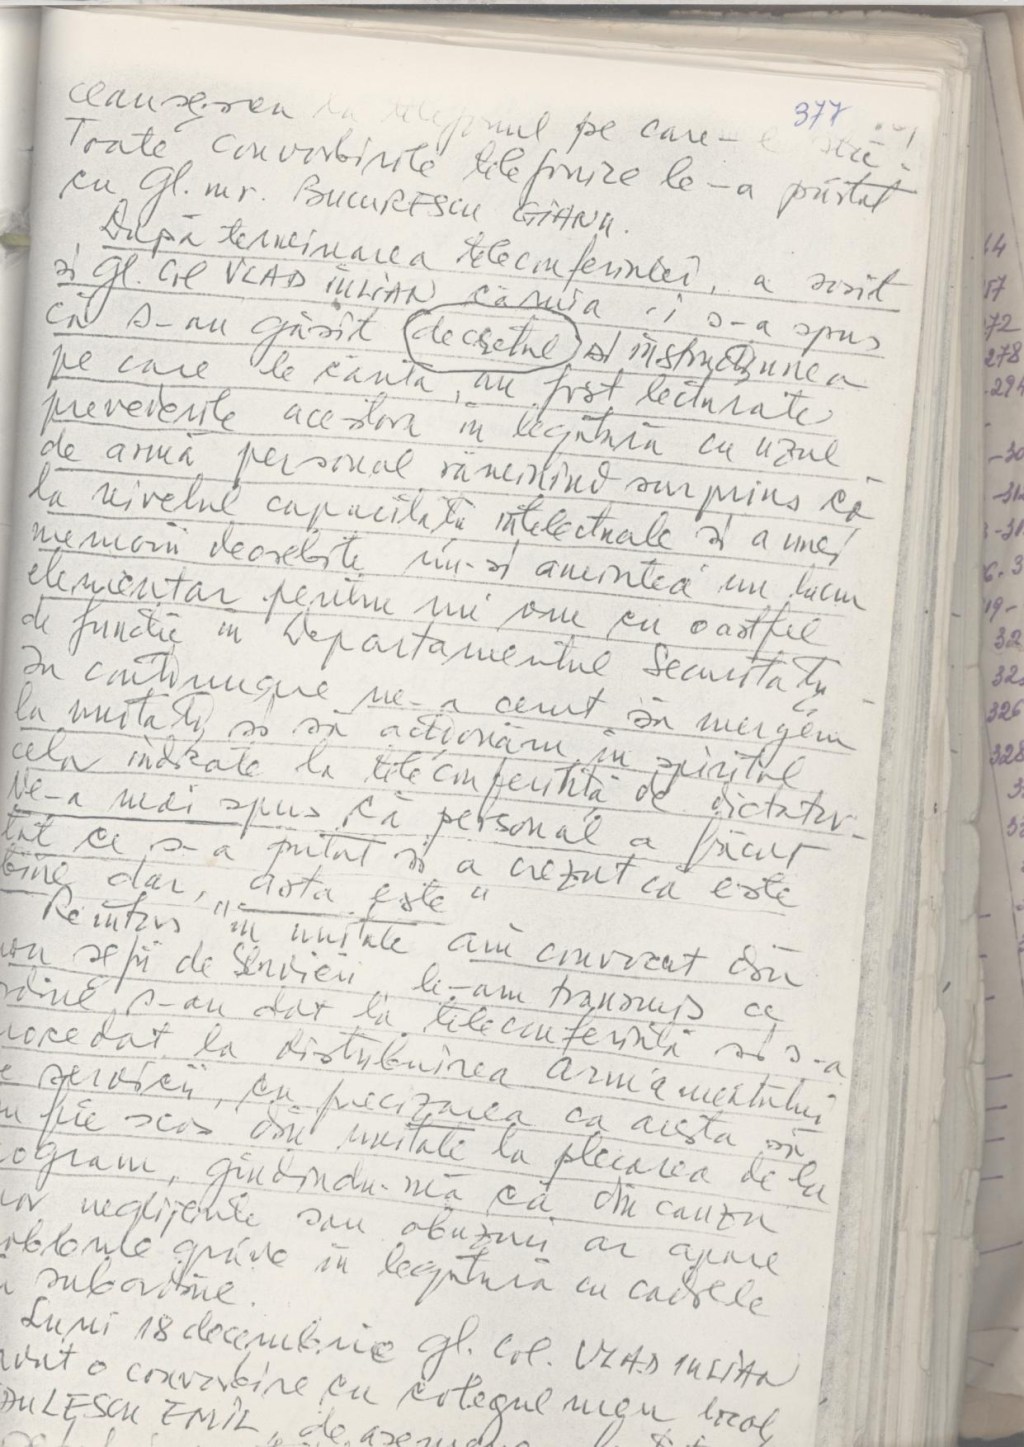 377
telefonul pe care
Toate convorbirile telefonice le-a purtat
cu Gl. mr. BUCURESCU GIANU.
După terminarea teleconferinței, a sosit
și Gl. col VLAD IULIAN căruia i s-a spus
că s-au găsit decretul și instrucțiunea
pe care le căuta, au fost lecturate
prevederile acestora în legătură cu uzul
de armă, personal rămînînd surprins că
la nivelul capacității intelectuale și a unei
memorii deosebite nu-și amintea un lucru
elementar pentru un om cu o astfel
de funcție în Departamentul Securității
În continuare ne-a cerut să mergem
la unități și să acționăm în spiritul
celor indicate la teleconferință de dictator.
Ne-a mai spus că personal a făcut
tot ce s-a putut și a crezut că este
bine dar, "asta este"
Reîntors în unitate am convocat din
nou șefii de servicii, le-am transmis ce
ordine s-au dat la teleconferință și s-a
procedat la distribuirea armamentului
servicii, cu precizarea ca acesta să
fie scos din unitate la plecarea de la
program, gîndindu-mă că din cauza
unor neglijențe sau abuzuri ar apare
probleme grave în legătură cu cadrele
subordine.
Luni 18 decembrie Gl. col. VLAD IULIAN
avut o convorbire cu colegul meu local,
EMIL, de asemenea